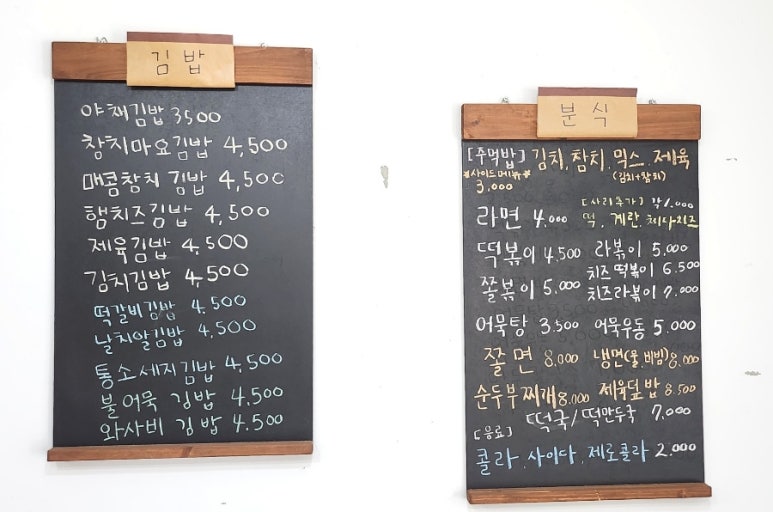 김밥
야채김밥 3500
참치마요김밥 4,500
매콤참치 김밥 4,500
햄치즈김밥 4,500
제육김밥 4,500
김치김밥 4,500
떡갈비김밥 4,500
날치알김밥 4,500
통소세지김밥 4,500
불어묵 김밥 4,500
와사비 김밥 4.500
분식
[주먹밥] 김치, 참치, 믹스, 제육
*사이드메뉴* (김치+참치)
3,000
[사리추가] 각1.000
라면 4.000 떡, 계란, 체다치즈
떡볶이 4,500 라볶이 5,000
쫄볶이 5,000 치즈떡볶이 6.500
치즈라볶이 7.000
어묵탕 3.500 어묵우동 5.000
쫄면 8.000 냉면(물,비빔)8.000
순두부찌개8.000 제육덮밥 8.500
떡국/떡만두국 7.000
[음료]
콜라, 사이다, 제로콜라 2.000